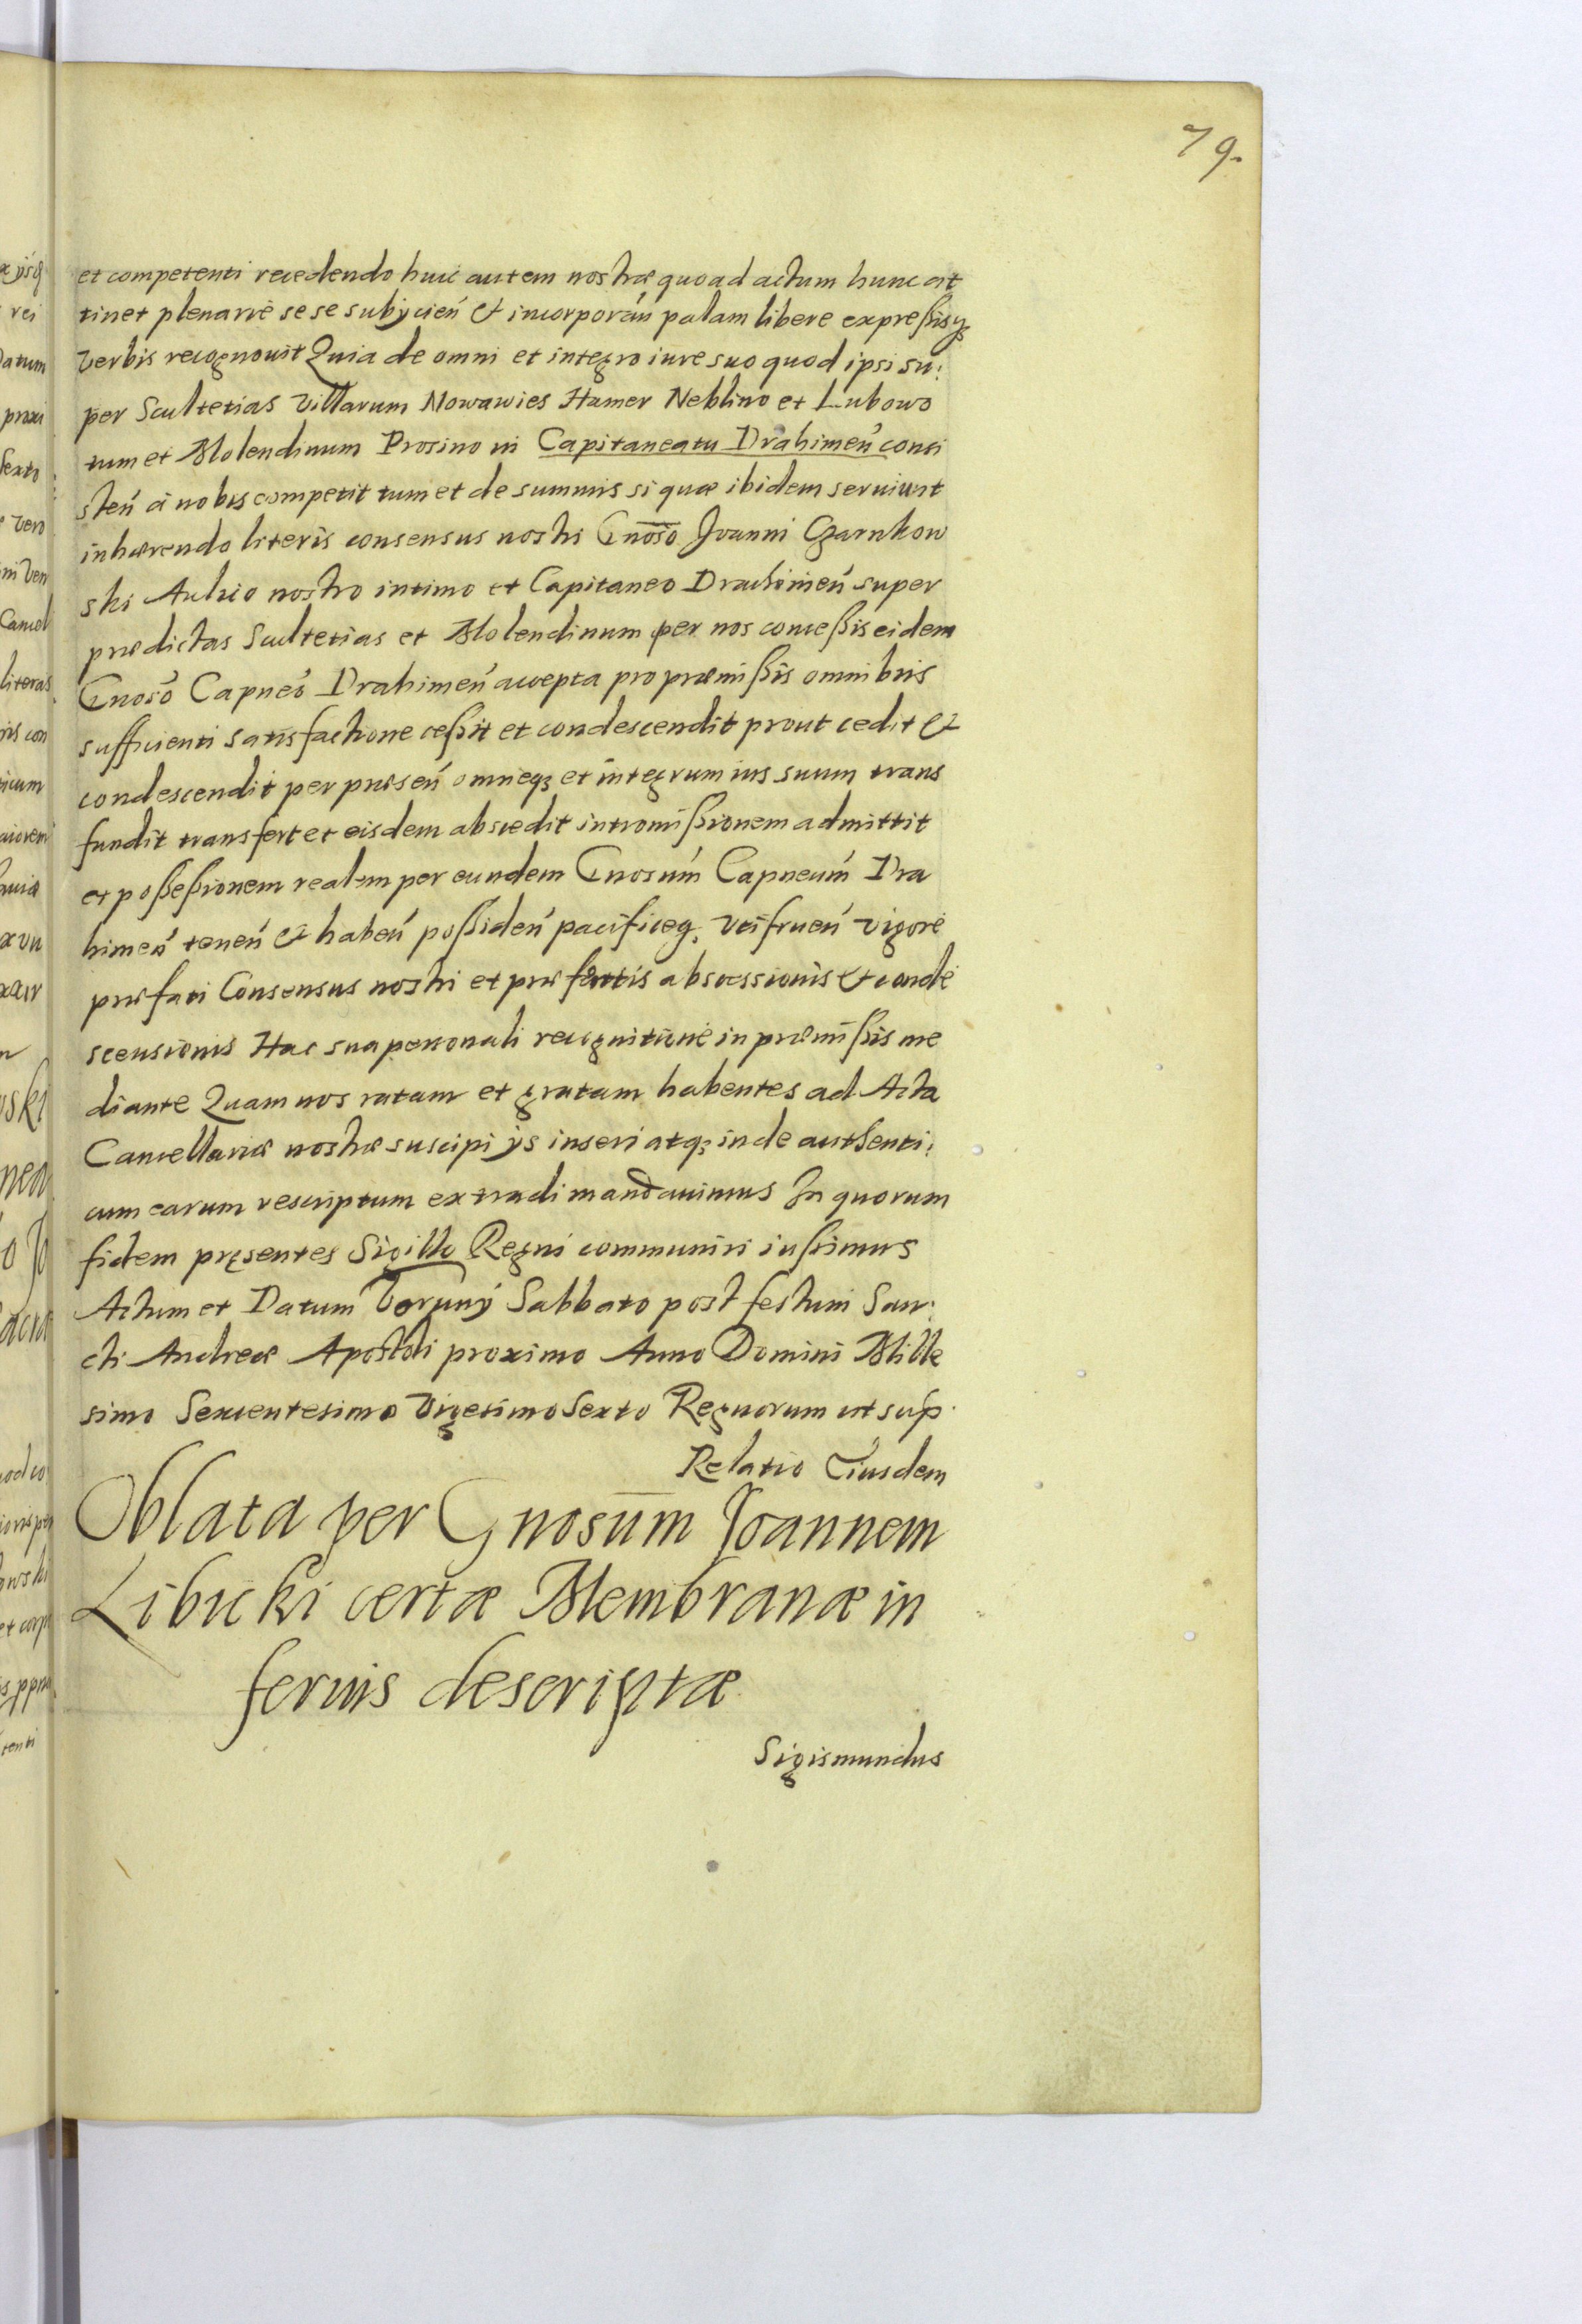 79.
et competenti recedendo huic autem nostræ quoad actum hunc at
tinet plenarie sese subÿcień & incorporań palam libere expreßisq;
verbis recognouit Quia de omni et integro iure suo quod ipsi su:
per Scultetias Villarum Nowawies Hamer Neblino et Lubowo
tum et Molendinum Prosino in Capitaneatu Drahimeń consi
steń a nobis competit tum et de summis si quæ ibidem seruiunt
inhærendo literis consensus nostri Gnoso Joanni Czarnkow
ski Aulico nostro intimo et Capitaneo Drachimeń super
prædictas Scultetias et Molendinum per nos conceßis eidem
Gnoso Capneo Drahimeń accepta pro præmißis omnibus
sufficienti satisfactione ceßit et condescendit prout cedit &
condescendit per præseń omneq; et integrum ius suum trans
fundit transfert et eisdem abscedit intromißionem admittit
et poßeßionem realem per eundem Gnosum Capneum Dra
himeń teneń & habeń poßideń pacificeq; vtifrueń vigore
præfati Consensus nostri et præsentis abscessionis & conde
scensionis Hac sua personali recognitione in præmißis me
diante Quam nos ratam et gratam habentes ad Acta
Cancellariæ nostræ suscipi ÿs inseri atq; inde authenti:
cum earum rescriptum extradi mandauimus In quorum
fidem pręsentes Sigillo Regni communiri iußimus
Actum et Datum Torunÿ Sabbato post festum San:
cti Andreæ Apostoli proximo Anno Domini Mille
simo Sexcentesimo Vigesimo Sexto Regnorum ut sup.
Relatio Eiusdem
Oblata per Gnosum Joannem
Libicki certæ Membranæ in
ferius descriptæ
Sigismundus